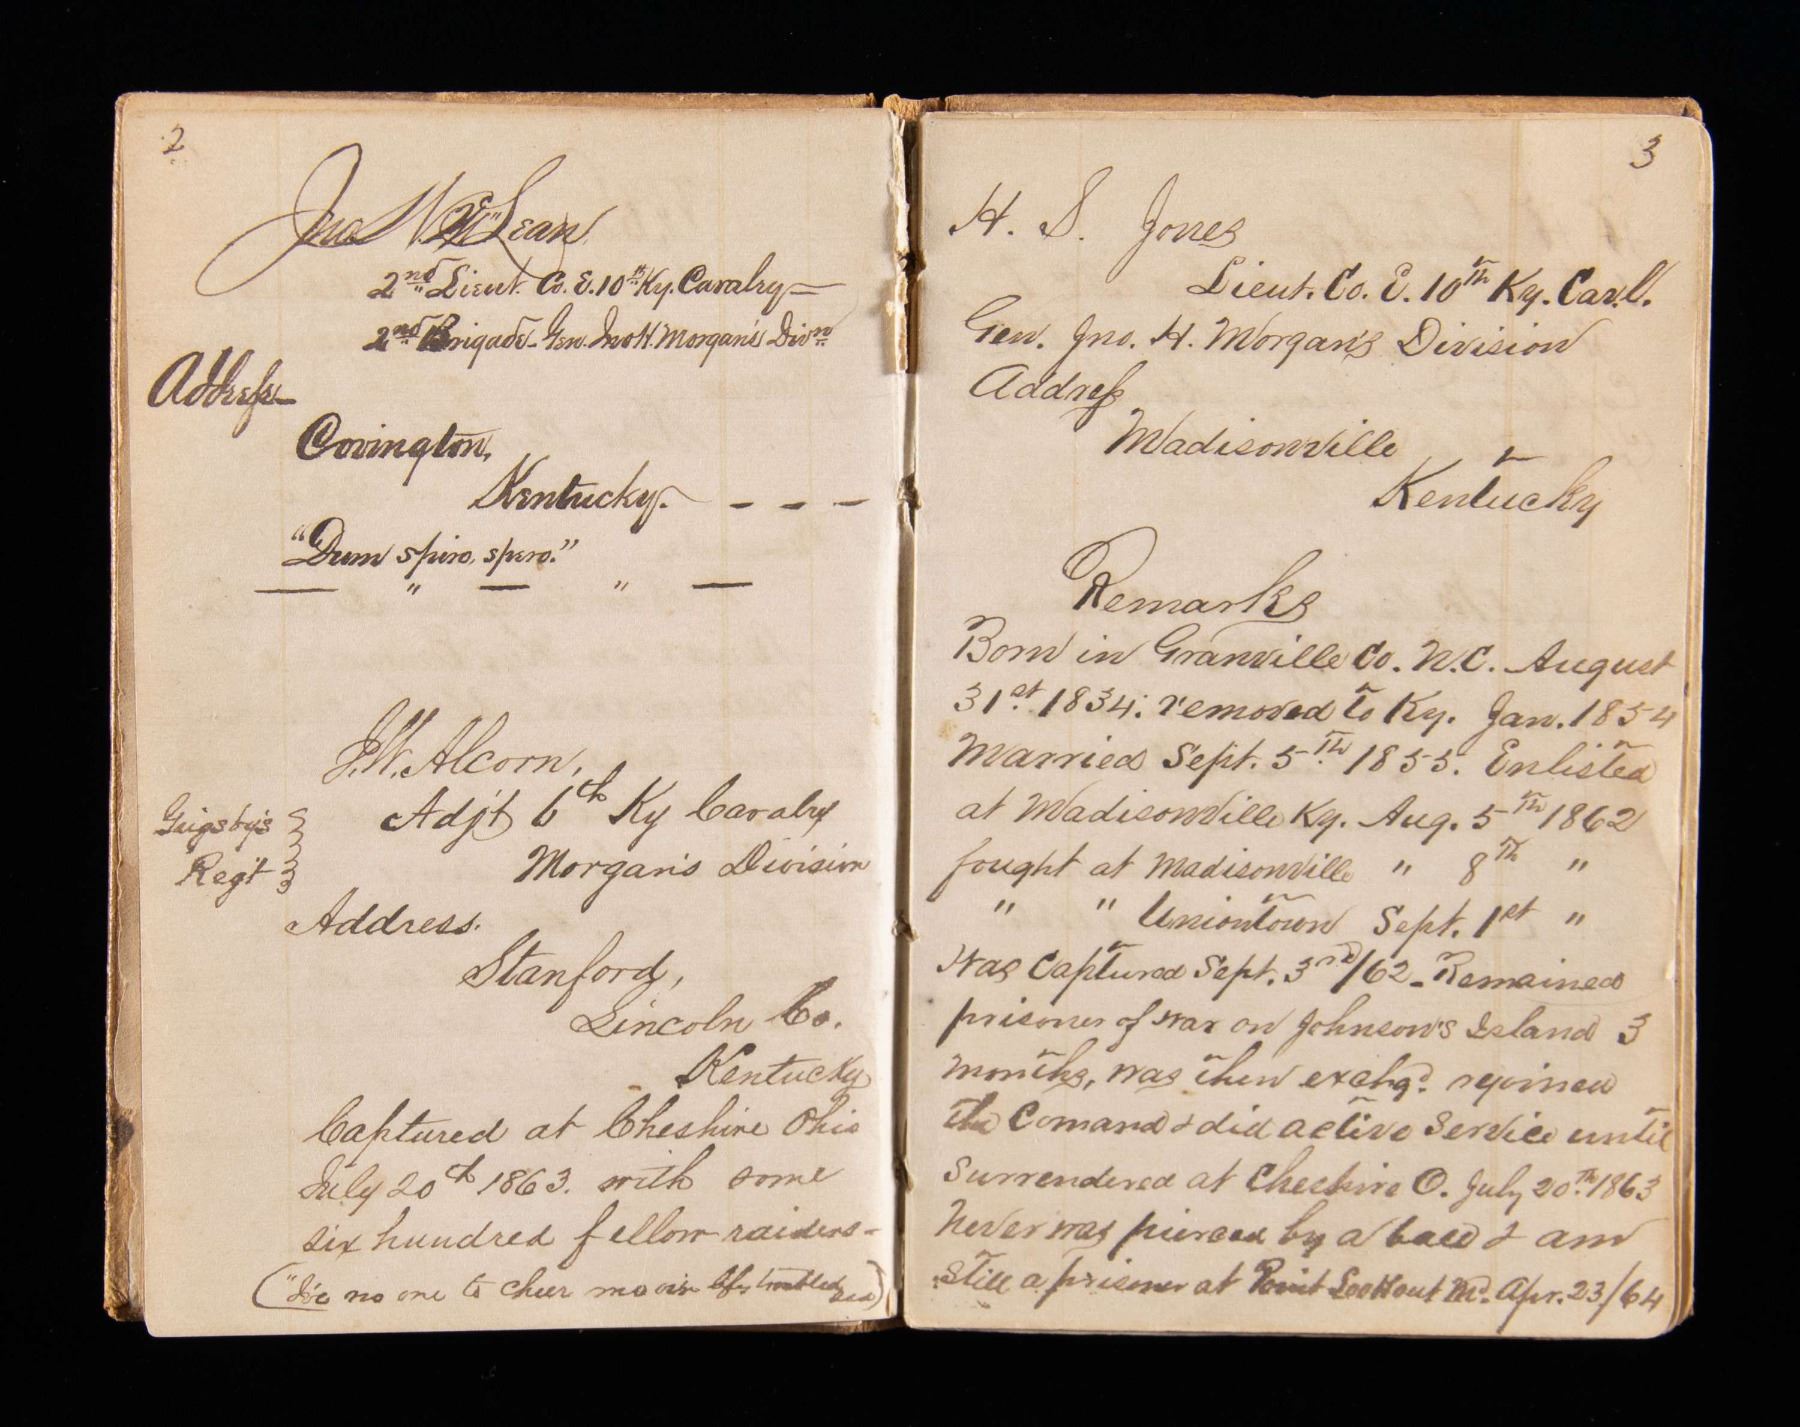 2
Jno. W. McLean
2nd Lieut. Co. E. 10th Ky. Cavalry—
2nd Brigade. Gen. Jno H. Morgan's Divn
Address—
Covington,
Kentucky. - - -
"Dum spiro, spero."
— " — " —
J.W. Alcorn,
Adj't 6th Ky Cavalry
Grigsby's
Morgan's Division
Reg't
Address.
Stanford,
Lincoln Co.
Kentucky
Captured at Cheshire Ohio
July 20th 1863. with some
six hundred fellow raiders-
("I've no one to cheer me o'er life's troubled sea)
3
H. S. Jones
Lieut. Co. E. 10th Ky. Cavl.
Gen. Jno. H. Morgan's Division
Address
Madisonville
Kentucky
Remarks
Born in Granville Co. N.C. August
31st 1834. removed to Ky. Jan. 1854
Married Sept. 5th 1855. Enlisted
at Madisonville Ky. Aug. 5th 1862
fought at Madisonville " 8th "
" " Uniontown Sept. 1st "
Was Captured Sept. 3rd/62 - Remained
prisoner of war on Johnson's Island 3
months, was then exchgd. rejoined
the Comand & did active Service until
Surrendered at Cheshire O. July 20th 1863
Never was pierced by a ball & am
Still a prisoner at Point Lookout Md. Apr. 23/64